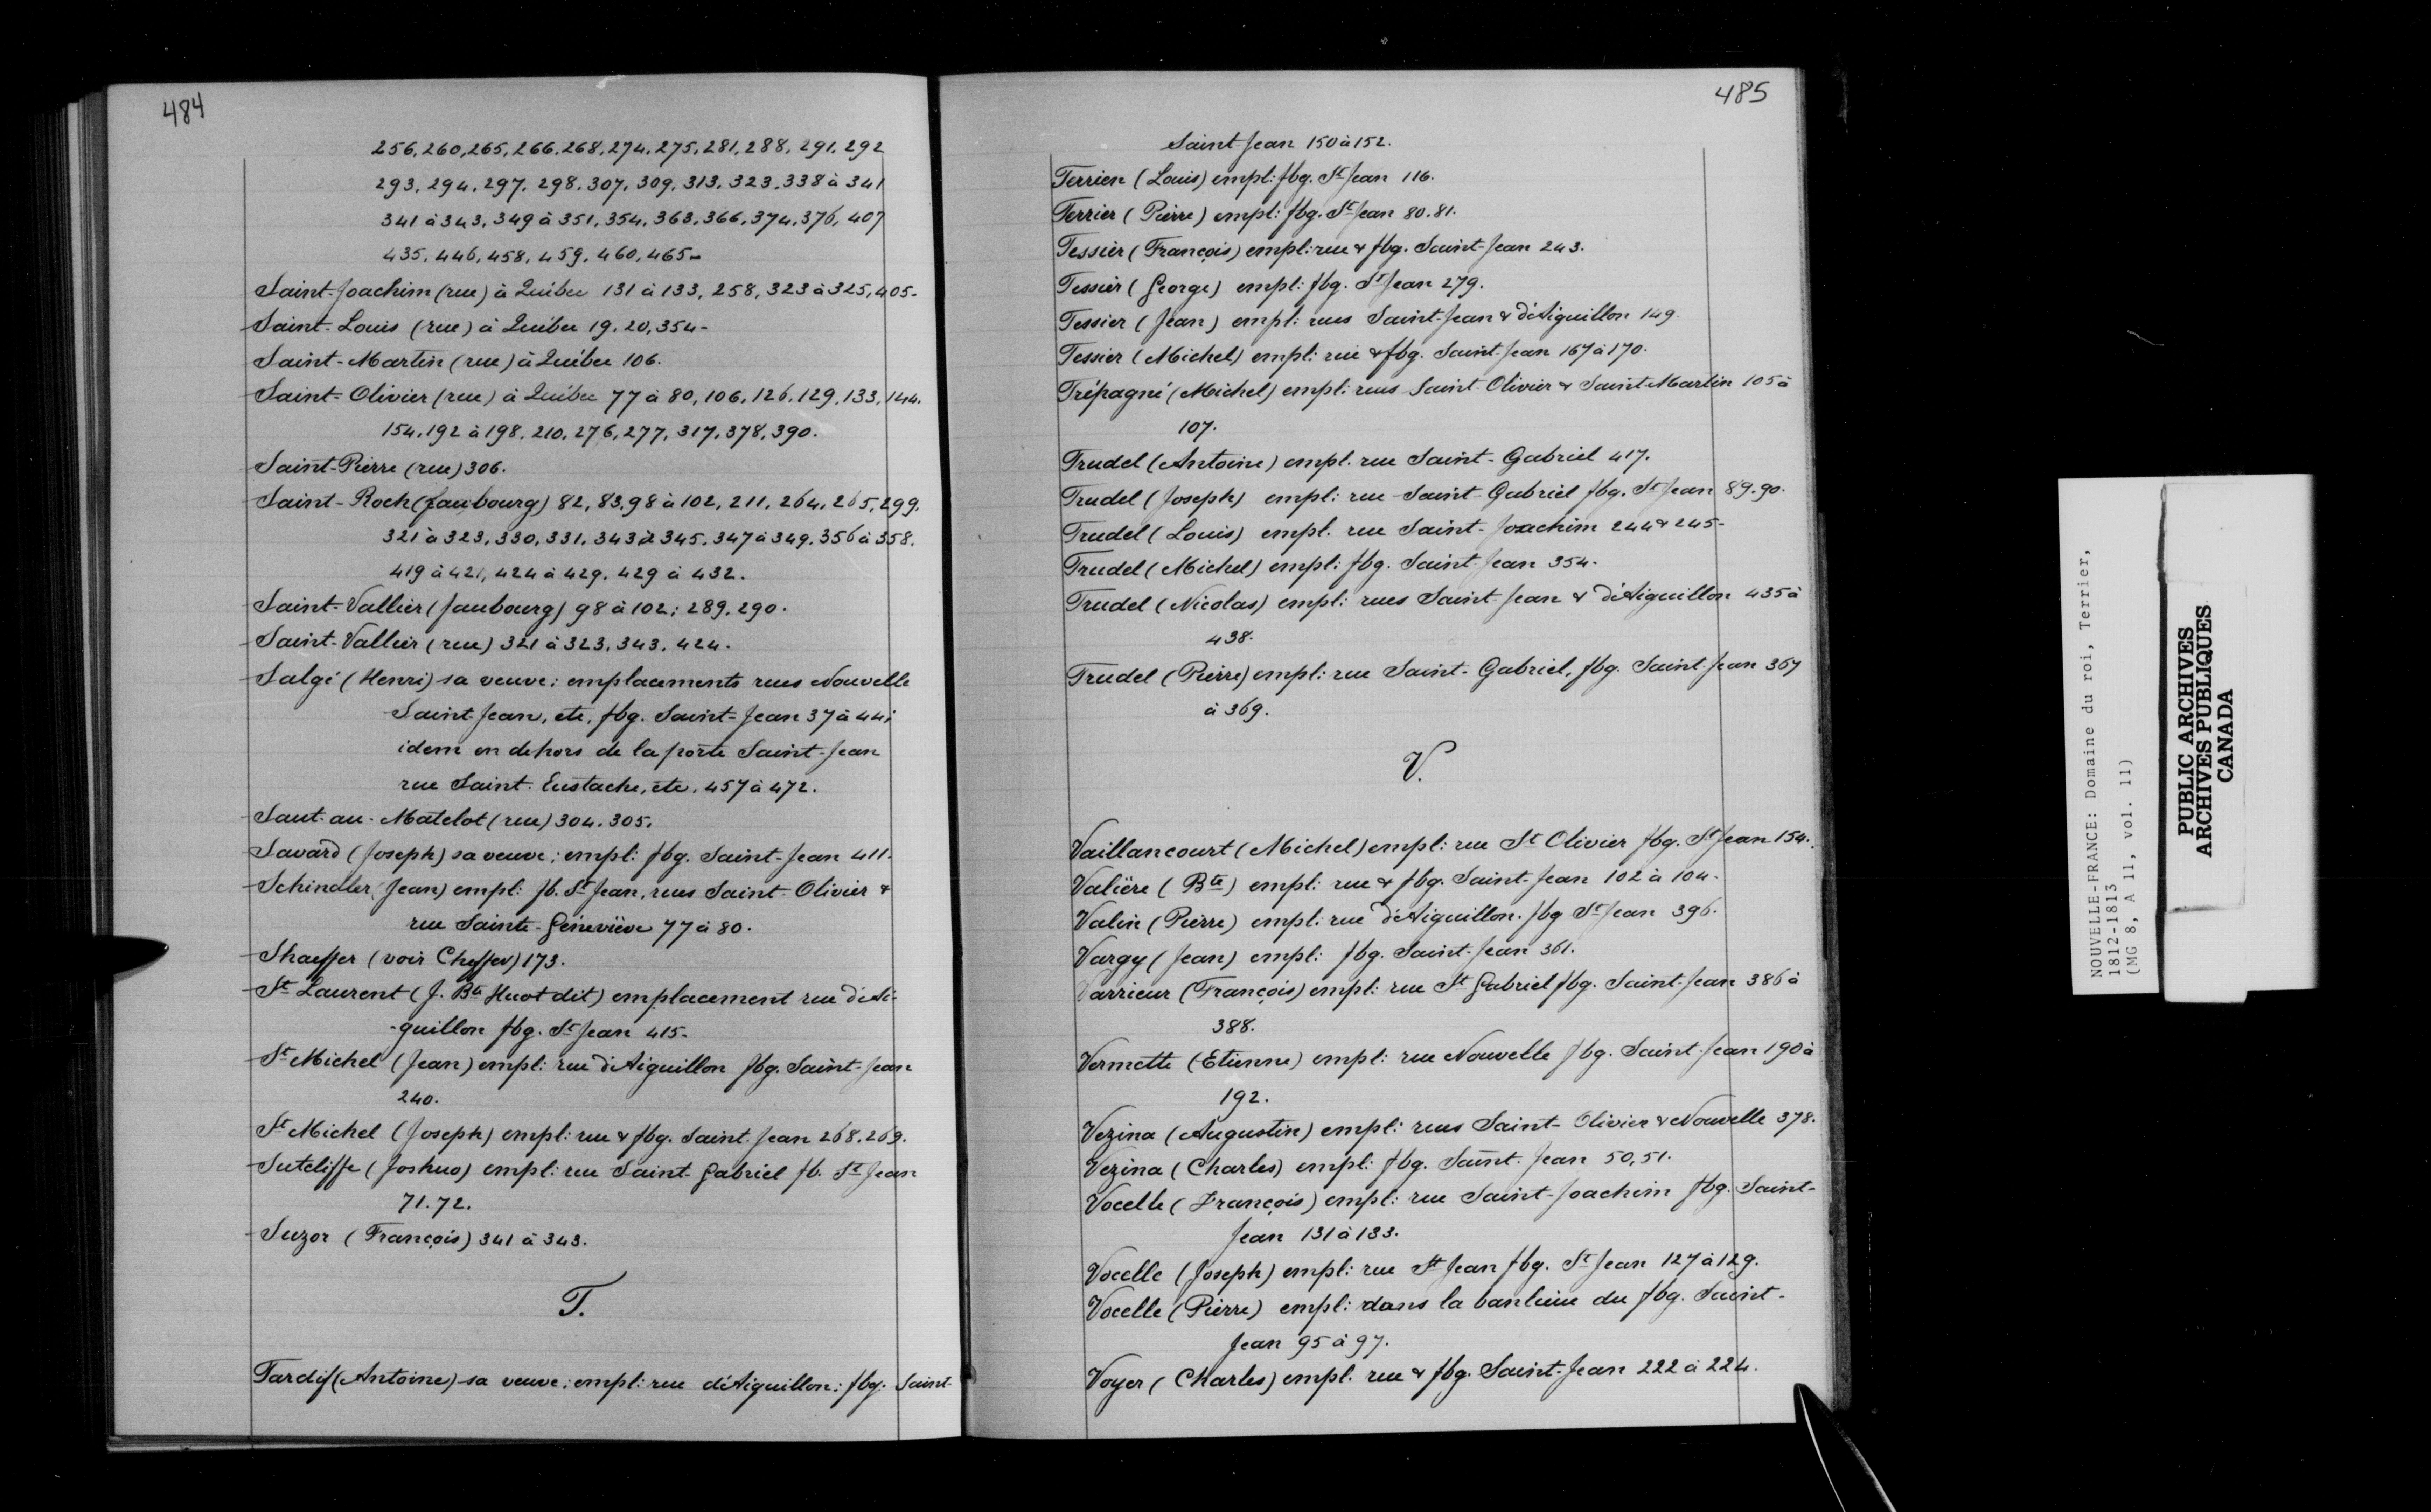 484
256, 260, 265, 266. 268. 274. 275. 281. 288. 291. 292
293. 294. 297. 298. 307. 309. 313. 323. 338 à 341
341 à 343. 349 à 351. 354. 363. 366. 374. 376. 407
435. 446. 458. 459. 460. 465-
Saint-Joachim (rue) à Québec 131 à 133, 258, 323 à 325, 405-
Saint-Louis (rue) à Québec 19. 20, 354-
Saint-Martin (rue) à Québec 106.
Saint-Olivier (rue) à Québec 77 à 80, 106. 126. 129. 133. 144.
154. 192 à 198. 210. 276, 277. 317. 378. 390.
Saint-Pierre (rue) 306.
Saint-Roch (faubourg) 82, 83. 98 à 102, 211. 264. 265. 299.
321 à 323. 330, 331. 343 à 345. 347 à 349. 356 à 358.
419 à 421, 424 à 429. 429 à 432.
Saint-Vallier (faubourg) 98 à 102; 289. 290.
Saint-Vallier (rue) 321 à 323. 343. 424.
Salgé (Henri) sa veuve; emplacements rues Nouvelle
Saint Jean, etc, fbg. Saint-Jean 37 à 44;
idem en dehors de la porte Saint-Jean
rue Saint Eustache, etc. 457 à 472.
Saut-au-Matelot (rue) 304. 305.
Savard (Joseph) sa veuve; empl: fbg. Saint-Jean 411-
Schindler (Jean) empl: fb. St Jean, rues Saint-Olivier &
rue Sainte-Géneviève 77 à 80.
Shaeffer (voir Cheffer) 173.
St Laurent (J. Bte Huot dit) emplacement rue d'Ai-
-guillon fbg. St Jean 415-
St Michel (Jean) empl: rue d'Aiguillon fbg. Saint-Jean
240.
St Michel (Joseph) empl: rue & fbg. Saint Jean 268. 269.
Sutcliffe (Joshua) empl: rue Saint Gabriel fb. St Jean
71. 72.
Suzor (François) 341 à 343.
T.
Tardif (Antoine) sa veuve; empl: rue d'Aiguillon; fbg. Saint-
485
Saint Jean 150 à 152.
Terrien (Louis) empl: fbg. St Jean 116.
Terrier (Pierre) empl: fbg. St Jean 80. 81.
Tessier (François) empl: rue & fbg. Saint-Jean 243.
Tessier (George) empl: fbg. St Jean 279.
Tessier (Jean) empl: rues Saint-Jean & d'Aiguillon 149
Tessier (Michel) empl: rue & fbg. Saint-Jean 167 à 170.
Trépagné (Michel) empl: rues Saint Olivier & Saint-Martin 105 à
107.
Trudel (Antoine) empl. rue Saint-Gabriel 417.
Trudel (Joseph) empl: rue Saint-Gabriel fbg. St Jean 89. 90.
Trudel (Louis) empl. rue Saint-Joachim 244 & 245-
Trudel (Michel) empl: fbg. Saint Jean 354.
Trudel (Nicolas) empl: rues Saint-Jean & d'Aiguillon 435 à
438.
Trudel (Pierre) empl: rue Saint-Gabriel, fbg. Saint-Jean 367
à 369.
V.
Vaillancourt (Michel) empl: rue St Olivier fbg. St Jean 154.
Valière (Bte) empl: rue & fbg. Saint-Jean 102 à 104-
Valin (Pierre) empl: rue d'Aiguillon. fbg St Jean 396.
Vargy (Jean) empl: fbg. Saint-Jean 361.
Varrieur (François) empl: rue St Gabriel fbg. Saint-Jean 386 à
388.
Vermette (Etienne) empl: rue Nouvelle fbg. Saint Jean 190 à
192.
Vezina (Augustin) empl: rues Saint-Olivier & Nouvelle 378.
Vezina (Charles) empl: fbg. Saint Jean 50, 51.
Vocelle (François) empl: rue Saint-Joachim fbg. Saint-
Jean 131 à 133.
Vocelle (Joseph) empl: rue St Jean fbg. St Jean 127 à 129.
Vocelle (Pierre) empl: dans la banlieue du fbg. Saint-
Jean 95 à 97.
Voyer (Charles) empl. rue & fbg. Saint-Jean 222 à 224.
NOUVELLE-FRANCE: Domaine du roi, Terrier,
1812-1813
(MG 8, A 11, vol. 11)
PUBLIC ARCHIVES
ARCHIVES PUBLIQUES
CANADA